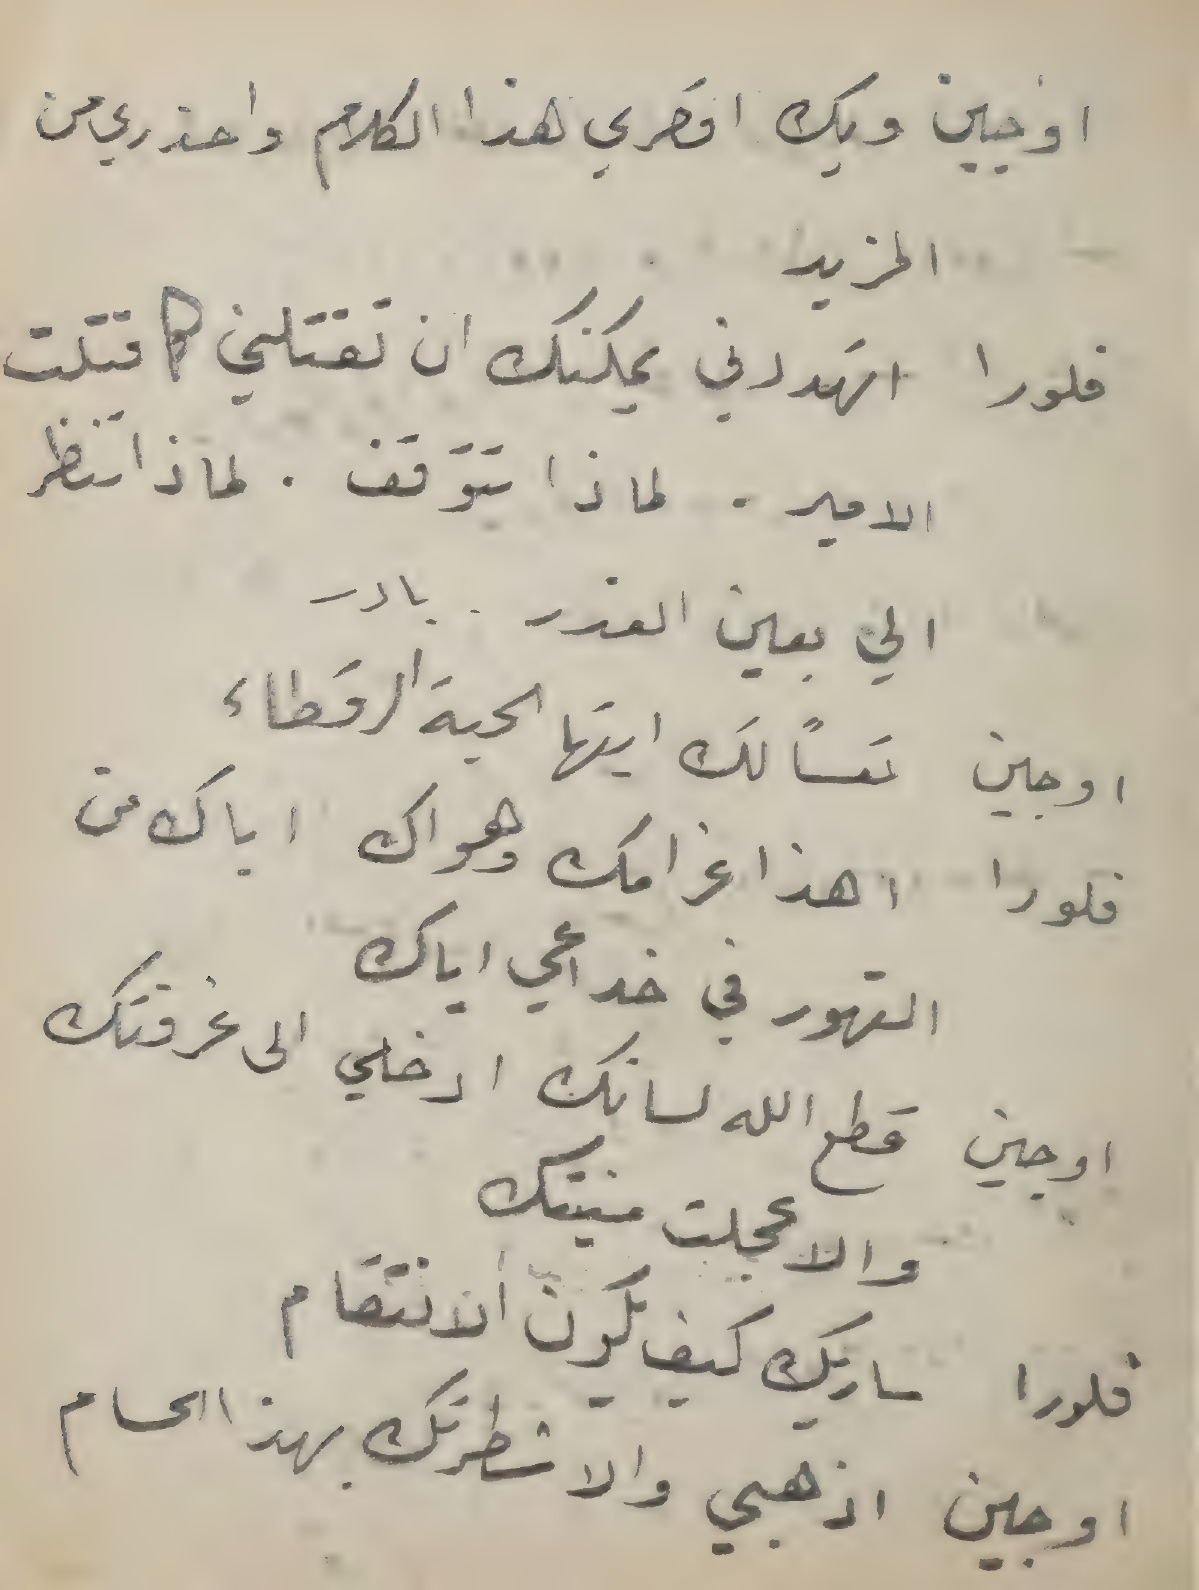 اوجين ويك اقصري هذا الكلام واحذري من
المزيد
فلورا اتهددني يمكنك ان تقتلني كما قتلت
الامير . لماذا تتوقف . لماذا تنظر
الي بعين الغدر . بادر
اوجين تعساً لك ايتها الحية الرقطاء
فلورا اهذا غرامك وهواك اياك من
التهور في خداعي اياك
اوجين قطع الله لسانك ادخلي الى غرفتك
والا عجلت منيتك
فلورا ساريك كيف يكون الانتقام
اوجين اذهبي والا شطرتك بهذا الحسام